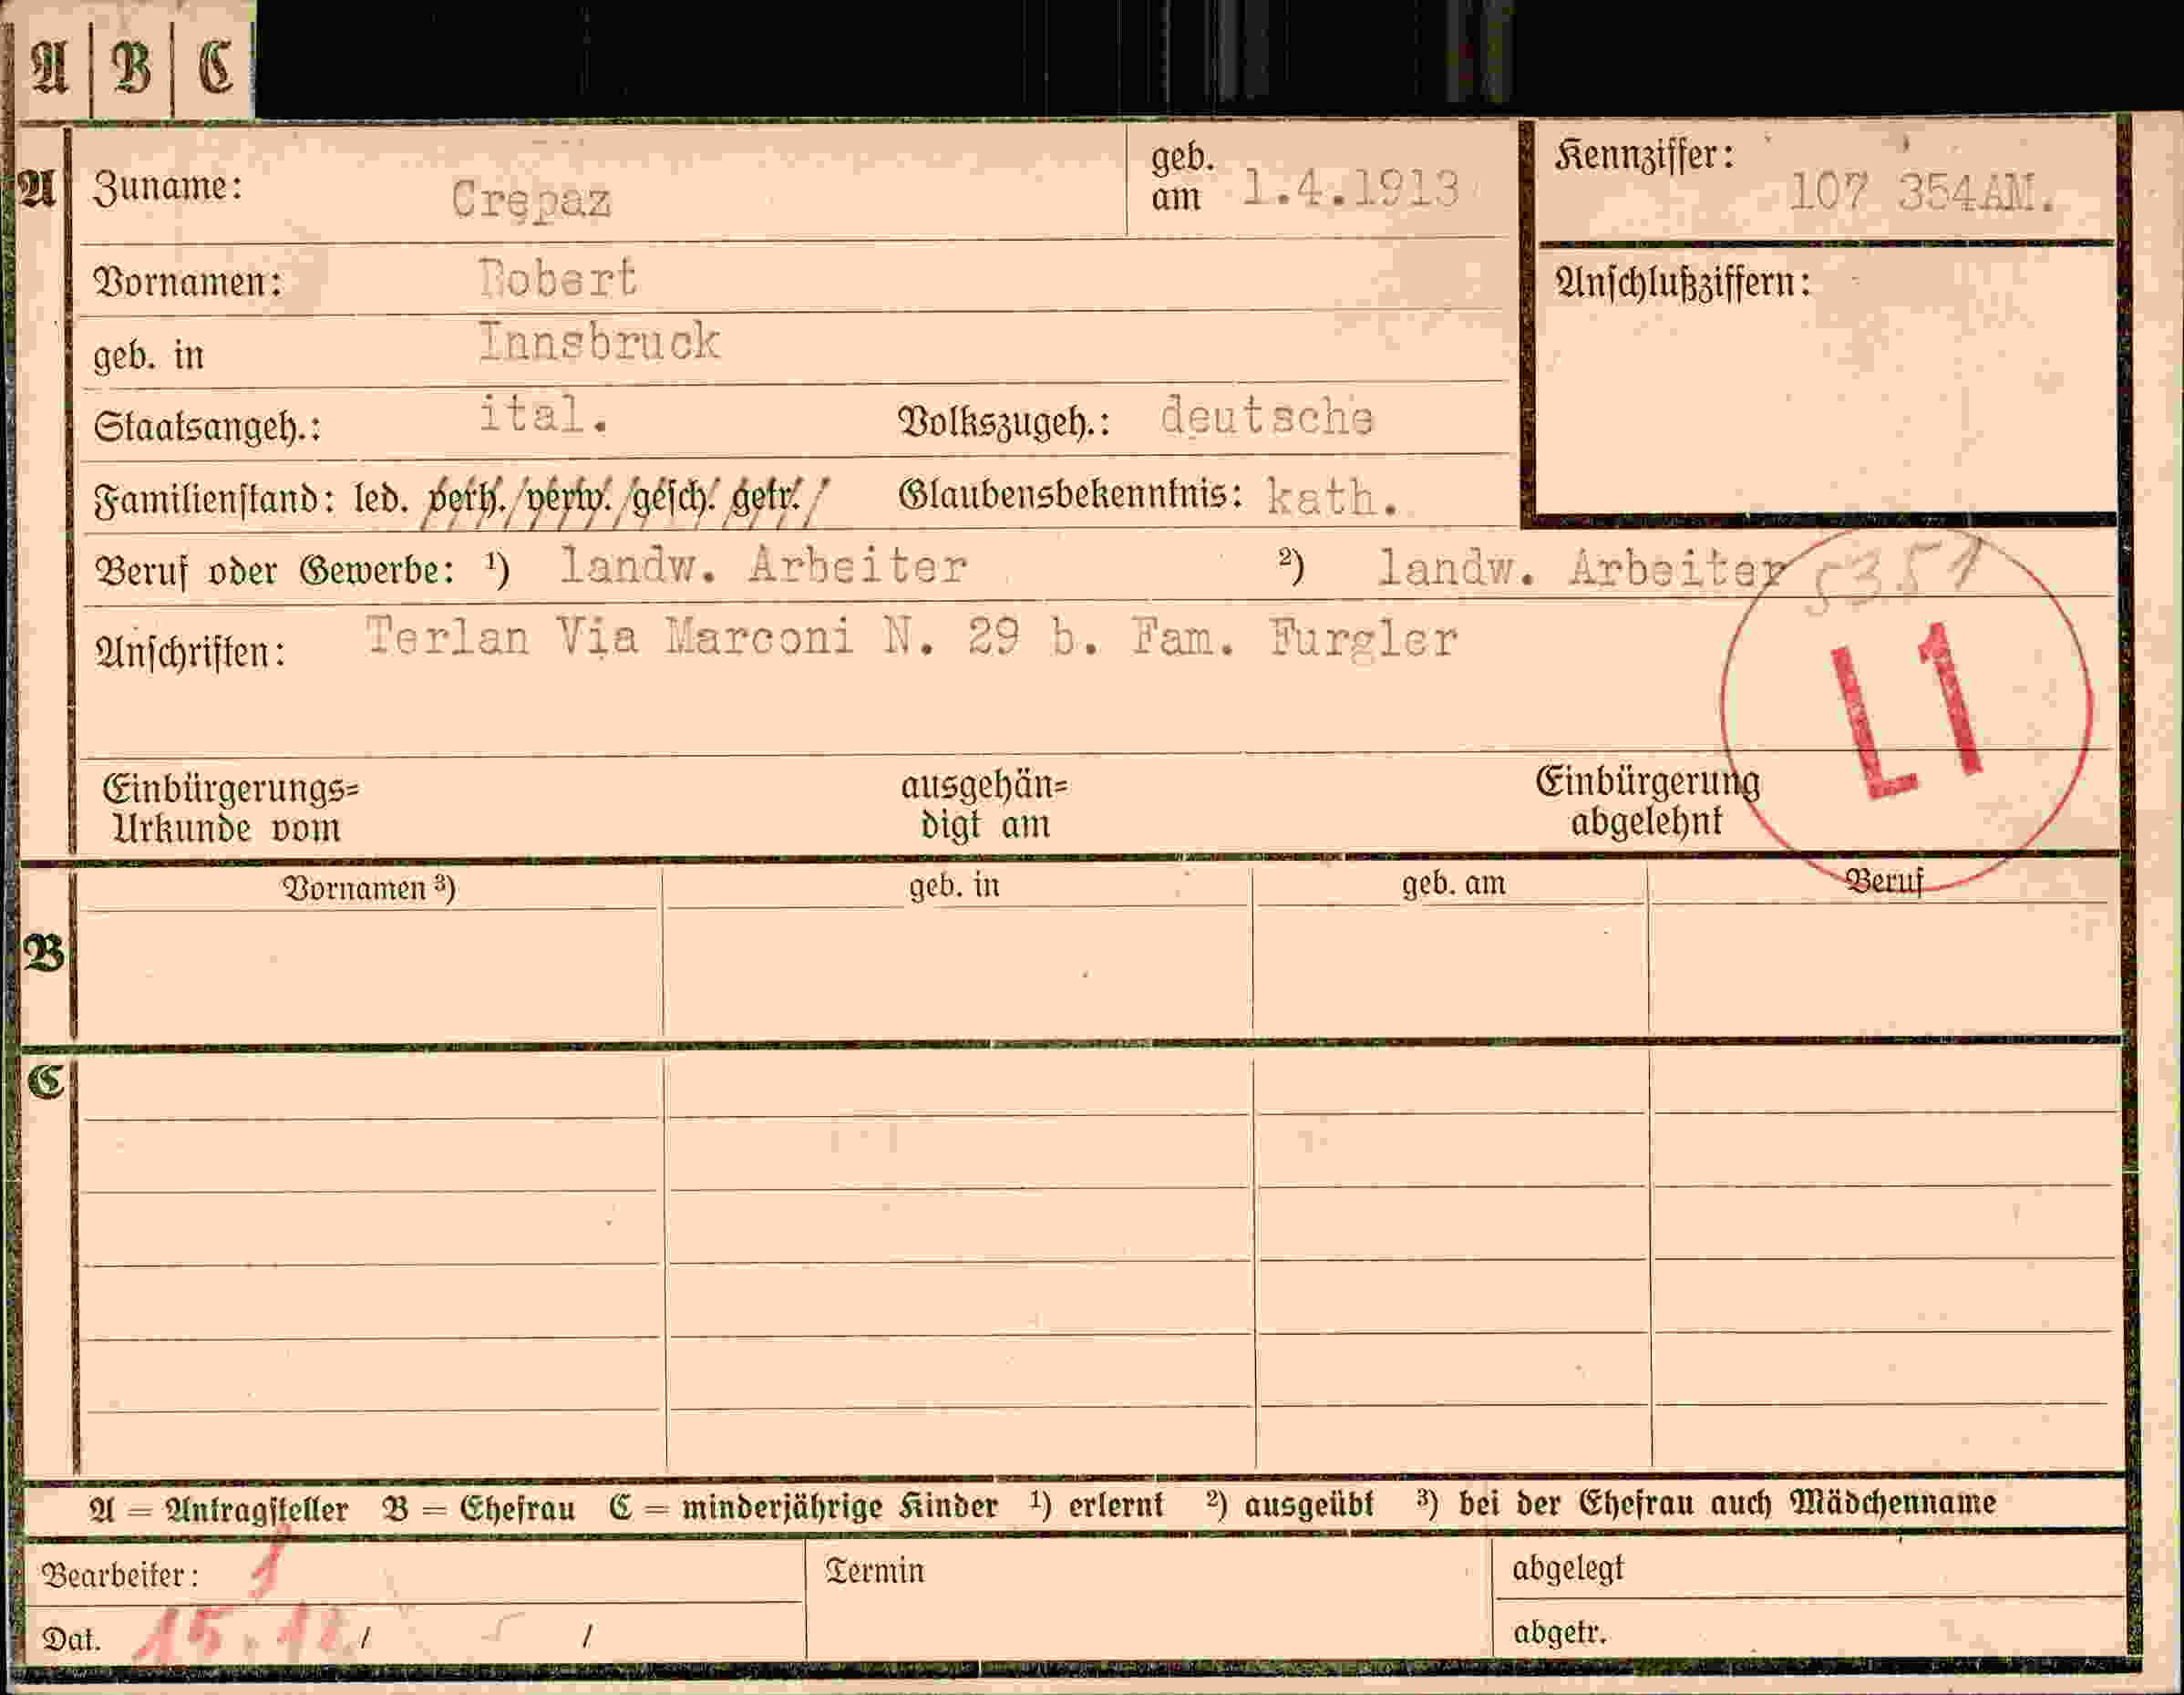 A | B | C
A Zuname: Crepaz geb. am 1.4.1913 Kennziffer: 107 354AM.
Vornamen: Robert Anschlußziffern:
geb. in Innsbruck
Staatsangeh.: ital. Volkszugeh.: deutsche
Familienstand: led. verh./verw./gesch./getr./ Glaubensbekenntnis: kath.
Beruf oder Gewerbe: ¹) landw. Arbeiter ²) landw. Arbeiter 5351
Anschriften: Terlan Via Marconi N. 29 b. Fam. Furgler
L1
Einbürgerungs= ausgehän= Einbürgerung
Urkunde vom digt am abgelehnt
Vornamen ³) geb. in geb. am Beruf
B
C
A = Antragsteller B = Ehefrau C = minderjährige Kinder ¹) erlernt ²) ausgeübt ³) bei der Ehefrau auch Mädchenname
Bearbeiter: 1 Termin abgelegt
Dat. 15.12 / / abgetr.